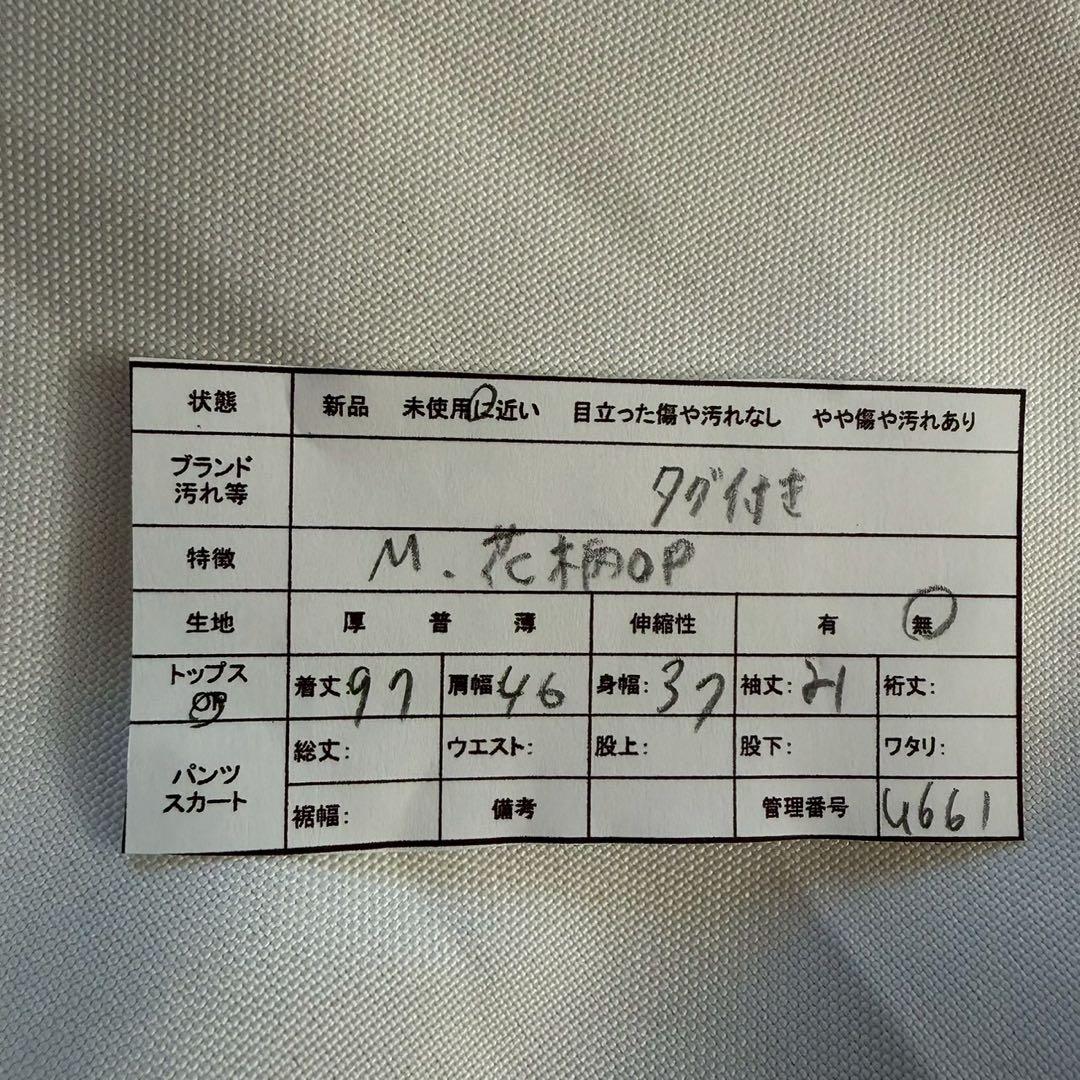 状態 新品 未使用に近い 目立った傷や汚れなし やや傷や汚れあり
ブランド
汚れ等 タグ付き
特徴 M.花柄OP
生地 厚 普 薄 伸縮性 有 無
トップス
OP
着丈:97 肩幅:46 身幅:37 袖丈:21 裄丈:
パンツ
スカート
総丈: ウエスト: 股上: 股下: ワタリ:
裾幅: 備考 管理番号 4661